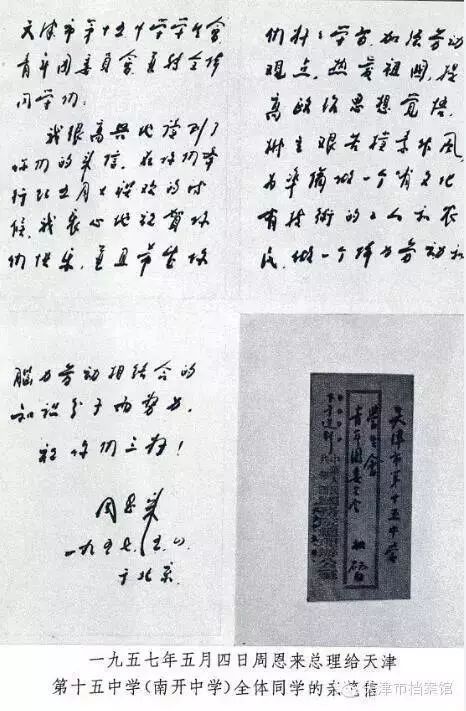 天津市第十五中学学生会、
青年团委员会並转全体
同学们:
我很高兴地读到了
你们的来信。在你们举
行红五月大联欢的时
候,我衷心地祝贺你
们快乐,並且希望你
们好々学習,加强劳动
观点,热爱祖国,提
高政治思想觉悟,
树立艰苦朴素作风,
为准备做一个有文化
有技術的工人和农
民,做一个体力劳动和
脑力劳动相结合的
知识分子而努力。
祝你们三好!
周恩来
一九五七、五、四、
于北京。
天津市第十五中学
学生会
青年团委员会
一九五七年五月四日周恩来总理给天津
第十五中学(南开中学)全体同学的亲笔信
天津市档案馆